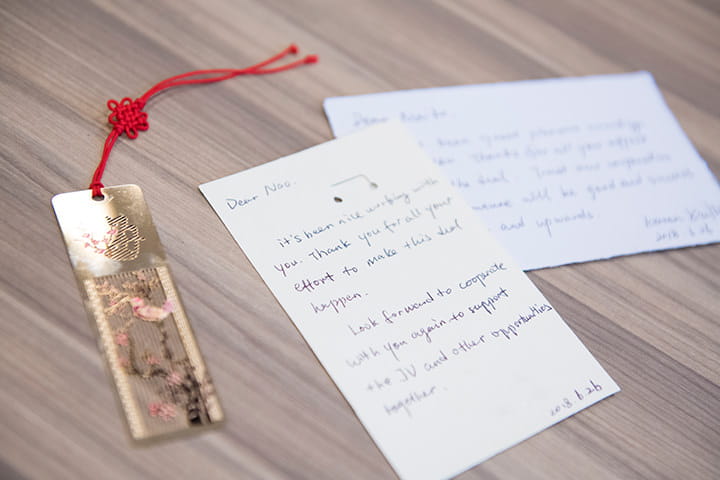 Dear Nao.
it's been nice working with
you. Thank you for all your
effort to make this deal
happen.
Look forward to cooperate
with you again to support
the JV and other opportunities
together.
2018.6.26
Dear
been great pleasure
Thanks for all your effort
the deal. Trust our cooperation
will be good and success
and upwards.
2018.6.26